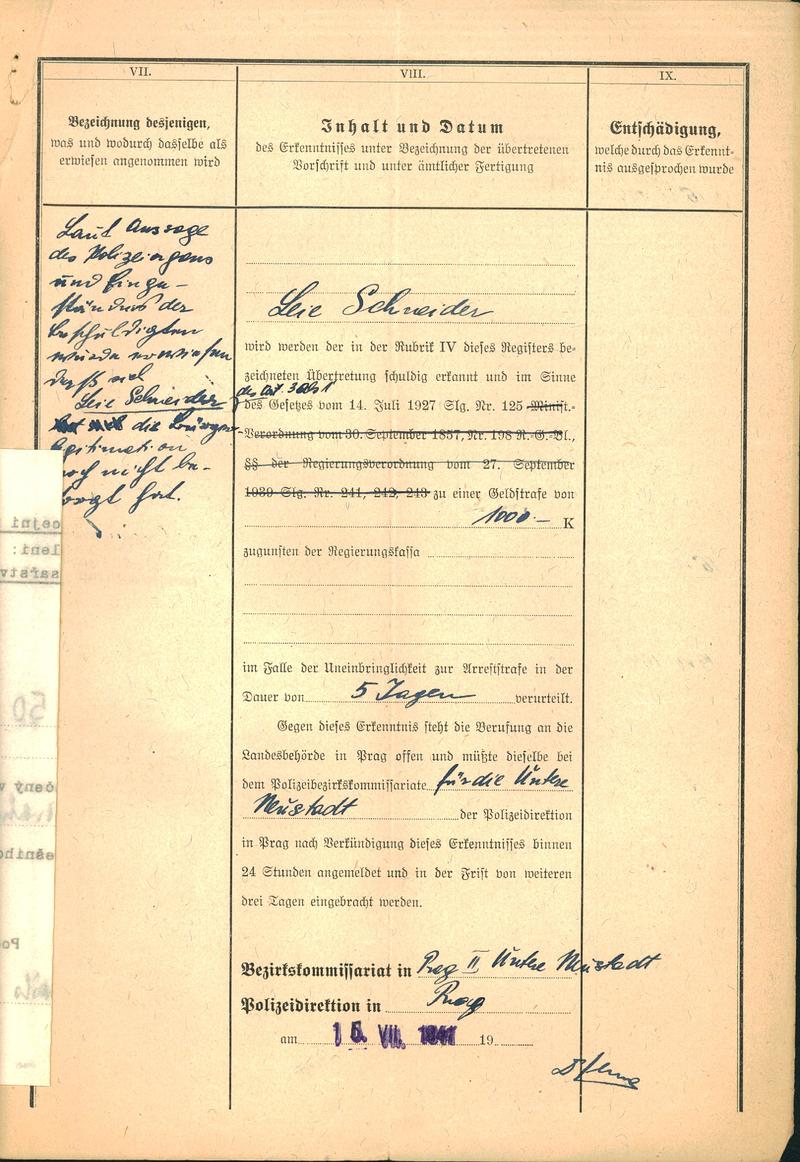 VII.
Bezeichnung desjenigen,
was und wodurch dasselbe als
erwiesen angenommen wird
VIII.
Inhalt und Datum
des Erkenntnisses unter Bezeichnung der übertretenen
Vorschrift und unter ämtlicher Fertigung
IX.
Entschädigung,
welche durch das Erkennt-
nis ausgesprochen wurde
Laut Aussage
des Polizeiorgans
und Einge-
ständnis der
beschuldigten
wurde erwiesen
daß sich
Leie Schneider
die
legitimation
noch nicht be-
sorgt hat.
Leie Schneider
wird werden der in der Rubrik IV dieses Registers be-
zeichneten Übertretung schuldig erkannt und im Sinne
des Art. 3 Abs 1
des Gesetzes vom 14. Juli 1927 Slg. Nr. 125 Minist.-
Verordnung vom 30. September 1857, Nr. 198 R.-G.-Bl.,
§§ der Regierungsverordnung vom 27. September
1939 Slg. Nr. 241, 242, 243 zu einer Geldstrafe von
1000.— K
zugunsten der Regierungskassa
im Falle der Uneinbringlichkeit zur Arreststrafe in der
Dauer von 5 Tagen verurteilt.
Gegen dieses Erkenntnis steht die Berufung an die
Landesbehörde in Prag offen und müßte dieselbe bei
dem Polizeibezirkskommissariate für die Untere
Neustadt der Polizeidirektion
in Prag nach Verkündigung dieses Erkenntnisses binnen
24 Stunden angemeldet und in der Frist von weiteren
drei Tagen eingebracht werden.
Bezirkskommissariat in Prag II Untere Neustadt
Polizeidirektion in Prag
am 15. VII. 1941 19